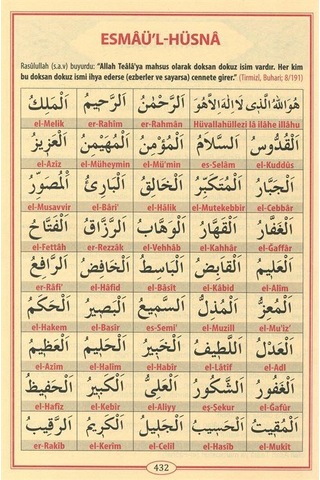 ESMÂÜ'L-HÜSNÂ
Rasûlullah (s.a.v) buyurdu: "Allah Teâlâ'ya mahsus olarak doksan dokuz isim vardır. Her kim
bu doksan dokuz ismi ihya ederse (ezberler ve sayarsa) cennete girer." (Tirmizî, Buhari; 8/191)
هُوَ اللّٰهُ الَّذِى لَا اِلٰهَ اِلَّا هُوَ اَلرَّحْمٰنُ اَلرَّحِيمُ اَلْمَلِكُ
el-Melik er-Rahîm er-Rahmân Hüvallahüllezi lâ ilâhe illâhu
اَلْقُدُّوسُ اَلسَّلَامُ اَلْمُؤْمِنُ اَلْمُهَيْمِنُ اَلْعَزِيزُ
el-Azîz el-Müheymin el-Mü'min es-Selâm el-Kuddûs
اَلْجَبَّارُ اَلْمُتَكَبِّرُ اَلْخَالِقُ اَلْبَارِئُ اَلْمُصَوِّرُ
el-Musavvir el-Bâri' el-Hâlik el-Mutekebbir el-Cebbâr
اَلْغَفَّارُ اَلْقَهَّارُ اَلْوَهَّابُ اَلرَّزَّاقُ اَلْفَتَّاحُ
el-Fettâh er-Rezzâk el-Vehhâb el-Kahhâr el-Gaffâr
اَلْعَلِيمُ اَلْقَابِضُ اَلْبَاسِطُ اَلْخَافِضُ اَلرَّافِعُ
er-Râfi' el-Hâfid el-Bâsit el-Kâbid el-Alîm
اَلْمُعِزُّ اَلْمُذِلُّ اَلسَّمِيعُ اَلْبَصِيرُ اَلْحَكَمُ
el-Hakem el-Basîr es-Semi' el-Muzill el-Mu'iz'
اَلْعَدْلُ اَللَّطِيفُ اَلْخَبِيرُ اَلْحَلِيمُ اَلْعَظِيمُ
el-Azîm el-Halîm el-Habîr el-Lâtif el-Adl
اَلْغَفُورُ اَلشَّكُورُ اَلْعَلِىُّ اَلْكَبِيرُ اَلْحَفِيظُ
el-Hafîz el-Kebîr el-Aliyy eş-Şekur el-Gafûr
اَلْمُقِيتُ اَلْحَسِيبُ اَلْجَلِيلُ اَلْكَرِيمُ اَلرَّقِيبُ
er-Rakîb el-Kerîm el-Celîl el-Hasîb el-Mukît
432